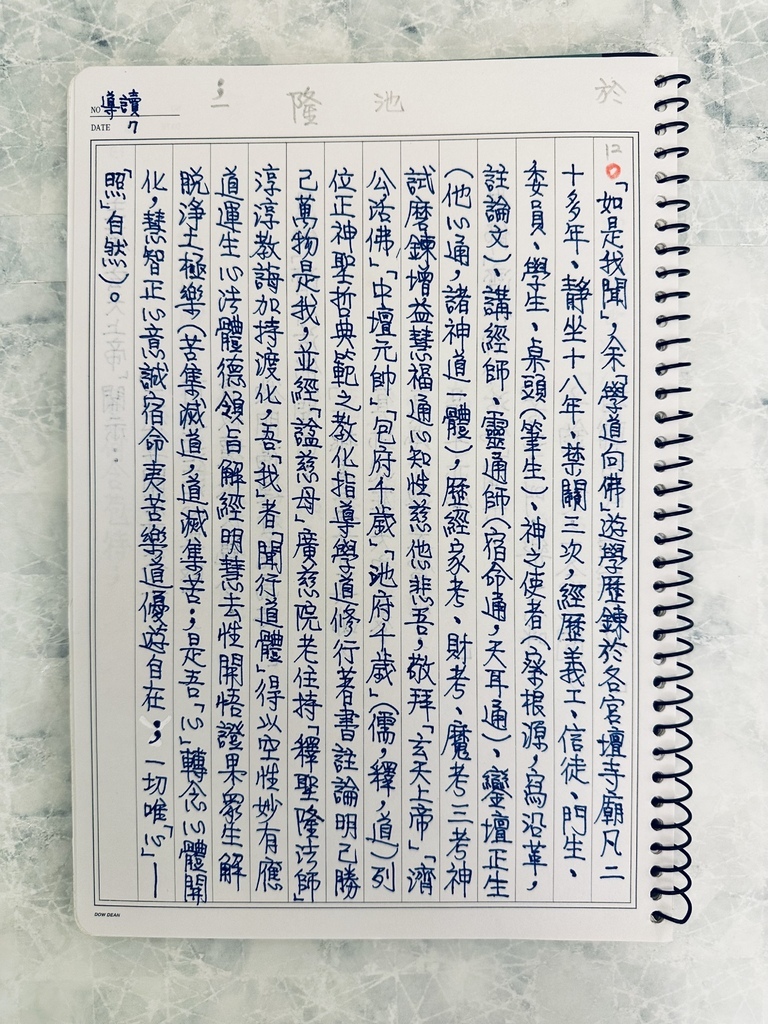 NO 導讀
DATE 7
於 池 隆 二 ;
12
「如是我聞」,余「學道向佛」遊學歷鍊於各宮壇寺廟凡二
十多年、靜坐十八年、禁關三次,經歷義工、信徒、門生、
委員、學生、桌頭(筆生)、神之使者(察根源,寫沿革,
註論文)、講經師、靈通師(宿命通,天耳通)、鑾壇正生
(他心通,諸神道一體),歷經家考、財考、魔考三考神
試磨鍊增益慧福通心知性慈他悲吾,敬拜「玄天上帝」「濟
公活佛」「中壇元帥」「包府千歲」「池府千歲」(儒,釋,道)列
位正神聖哲典範之教化指導學道修行著書註論明己勝
己萬物是我,並經「諡慈母」廣慈院老住持「釋聖隆法師」
淳淳教誨加持渡化,吾「我」者「聞行道體」得以空性妙有應
道運生心法體德領旨解經明慧去性開悟證果眾生解
脫淨土極樂(苦集滅道,道滅集苦;是吾「心」轉念心體開
化,慧智正心意誠宿命夷苦樂道優遊自在;一切唯「心」—
「照」自然)。
DOW DEAN